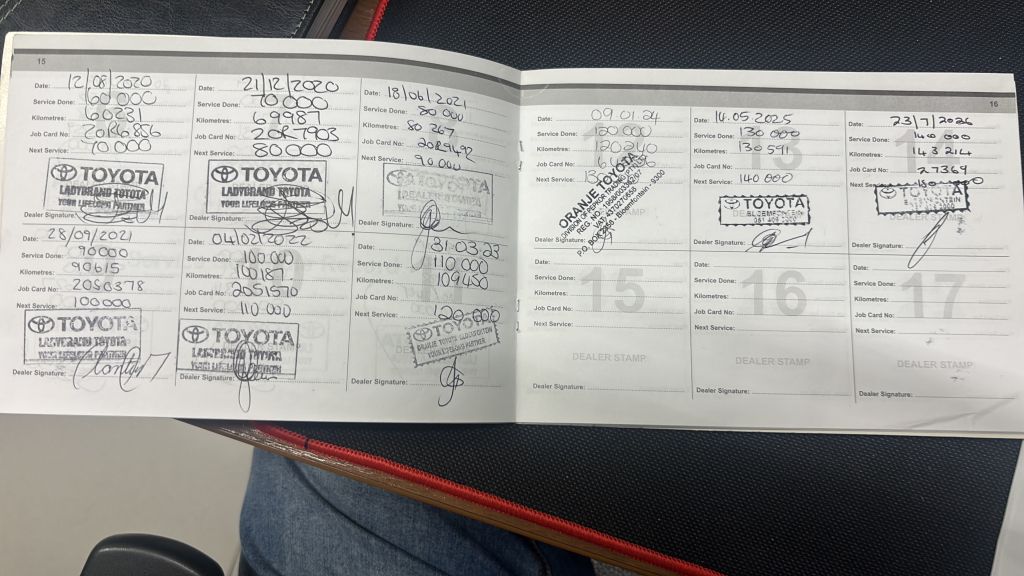 15
Date: 12/08/2020
Service Done: 60 000
Kilometres: 60231
Job Card No: 20R6856
Next Service: 70 000
TOYOTA
LADYBRAND TOYOTA
YOUR LIFELONG PARTNER
Dealer Signature:
Date: 21/12/2020
Service Done: 70 000
Kilometres: 69987
Job Card No: 20R7903
Next Service: 80 000
TOYOTA
LADYBRAND TOYOTA
YOUR LIFELONG PARTNER
Dealer Signature:
Date: 18/06/2021
Service Done: 80 000
Kilometres: 80 267
Job Card No: 20R9492
Next Service: 90 000
TOYOTA
Dealer Signature:
Date: 28/09/2021
Service Done: 90000
Kilometres: 90615
Job Card No: 20S0378
Next Service: 100000
TOYOTA
LADYBRAND TOYOTA
YOUR LIFELONG PARTNER
Dealer Signature:
Date: 04/02/2022
Service Done: 100 000
Kilometres: 100187
Job Card No: 20S1570
Next Service: 110 000
TOYOTA
LADYBRAND TOYOTA
YOUR LIFELONG PARTNER
Dealer Signature:
Date: 31.03.23
Service Done: 110 000
Kilometres: 109450
Job Card No:
Next Service: 120 000
TOYOTA
Dealer Signature:
16
Date: 09.01.24
Service Done: 120 000
Kilometres: 120240
Job Card No:
Next Service:
ORANJE TOYOTA
P.O. BOX Bloemfontein - 9300
Dealer Signature:
13
Date: 14.05.2025
Service Done: 130 000
Kilometres: 130591
Job Card No:
Next Service: 140 000
TOYOTA
BLOEMFONTEIN
Dealer Signature:
14
Date: 23/7/2026
Service Done: 140 000
Kilometres: 143214
Job Card No: 27369
Next Service:
TOYOTA
Dealer Signature:
15
Date:
Service Done:
Kilometres:
Job Card No:
Next Service:
DEALER STAMP
Dealer Signature:
16
Date:
Service Done:
Kilometres:
Job Card No:
Next Service:
DEALER STAMP
Dealer Signature:
17
Date:
Service Done:
Kilometres:
Job Card No:
Next Service:
DEALER STAMP
Dealer Signature: